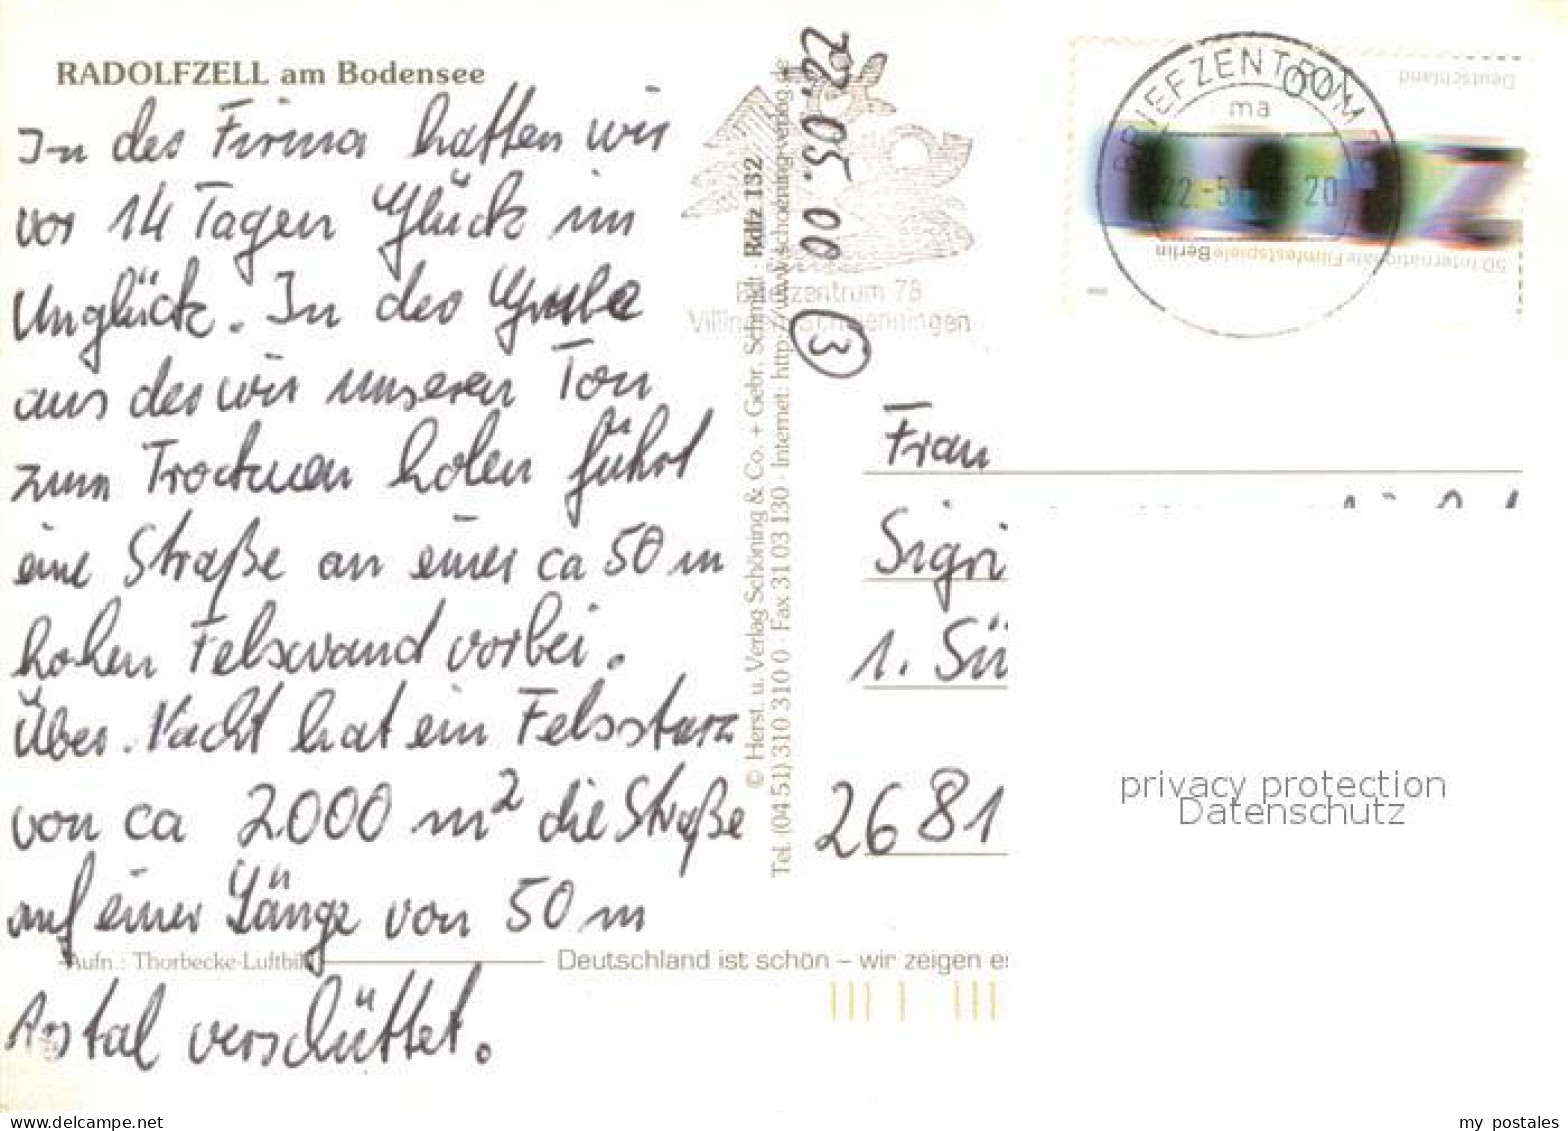 RADOLFZELL am Bodensee
In der Firma hatten wir
vor 14 Tagen Glück im
Unglück. In der Grube
aus der wir unseren Ton
zum Trocknen holen führt
eine Straße an einer ca 50 m
hohen Felswand vorbei.
Über Nacht hat ein Felssturz
von ca 2000 m² die Straße
auf einer Länge von 50 m
total verschüttet.
Aufn.: Thorbecke-Luftbild
Deutschland ist schön – wir zeigen es
© Herst. u. Verlag Schöning & Co. + Gebr. Schmidt · Rdfz 132
Tel. (04 51) 310 310 0 · Fax 31 03 130 · Internet: http://www.schoening-verlag.de
22.05.00
3
Briefzentrum 78
Villingen-Schwenningen
BRIEFZENTRUM 78
ma
22.-5. 20
Deutschland
50. Internationale Filmfestspiele Berlin
Frau
Sigri
1. Sü
2681
privacy protection
Datenschutz
my postales